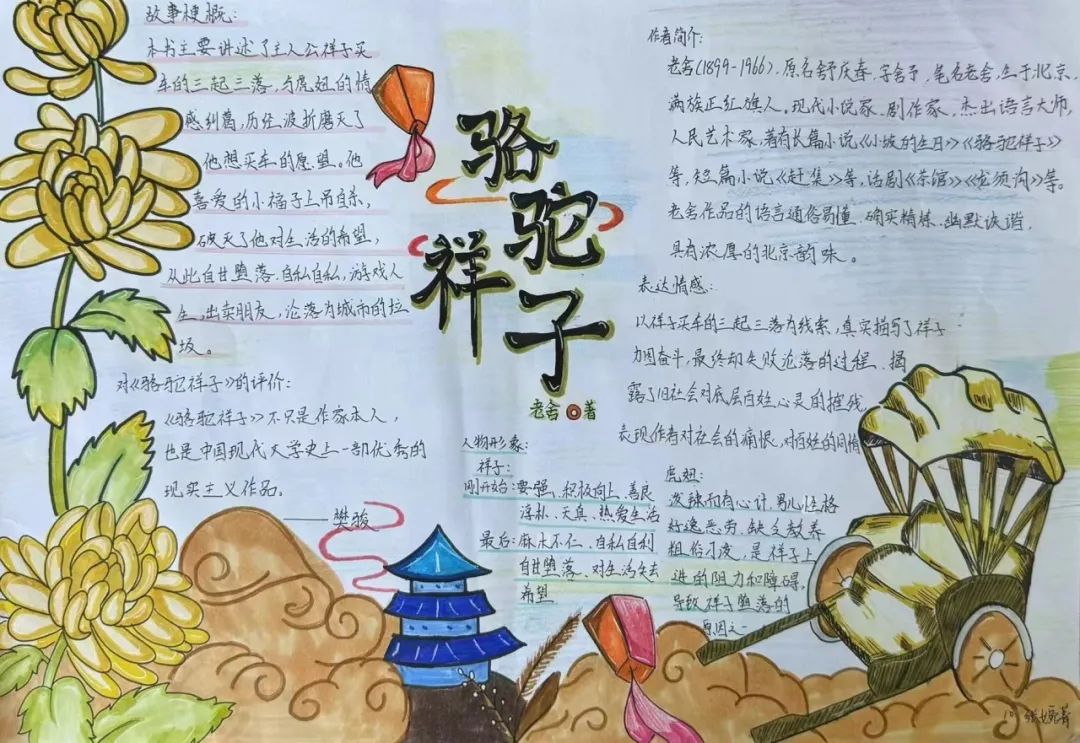 故事梗概:
本书主要讲述了主人公祥子买
车的三起三落,与虎妞的情
感纠葛,历经波折磨灭了
他想买车的愿望。他
喜爱的小福子上吊自杀,
破灭了他对生活的希望,
从此自甘堕落、自私自私,游戏人
生,出卖朋友,沦落为城市的垃
圾。
对《骆驼祥子》的评价:
《骆驼祥子》不只是作家本人,
也是中国现代文学史上一部优秀的
现实主义作品。
——樊骏
骆
驼
祥
子
老舍 著
作者简介:
老舍(1899-1966),原名舒庆春,字舍予,笔名老舍,生于北京,
满族正红旗人。现代小说家、剧作家、杰出语言大师,
人民艺术家,著有长篇小说《小坡的生日》《骆驼祥子》
等,短篇小说《赶集》等,话剧《茶馆》《龙须沟》等。
老舍作品的语言通俗易懂、确实精炼、幽默诙谐,
具有浓厚的北京韵味。
表达情感:
以祥子买车的三起三落为线索,真实描写了祥子
力图奋斗,最终却失败沦落的过程、揭
露了旧社会对底层百姓心灵的摧残,
表现作者对社会的痛恨,对百姓的同情
人物形象:
祥子:
刚开始:要强、积极向上、善良
淳朴、天真、热爱生活
最后:麻木不仁、自私自利
自甘堕落、对生活失去
希望
虎妞:
泼辣而有心计、男儿性格
好逸恶劳、缺乏教养
粗俗刁泼,是祥子上
进的阻力和障碍,
导致祥子堕落的
原因之一